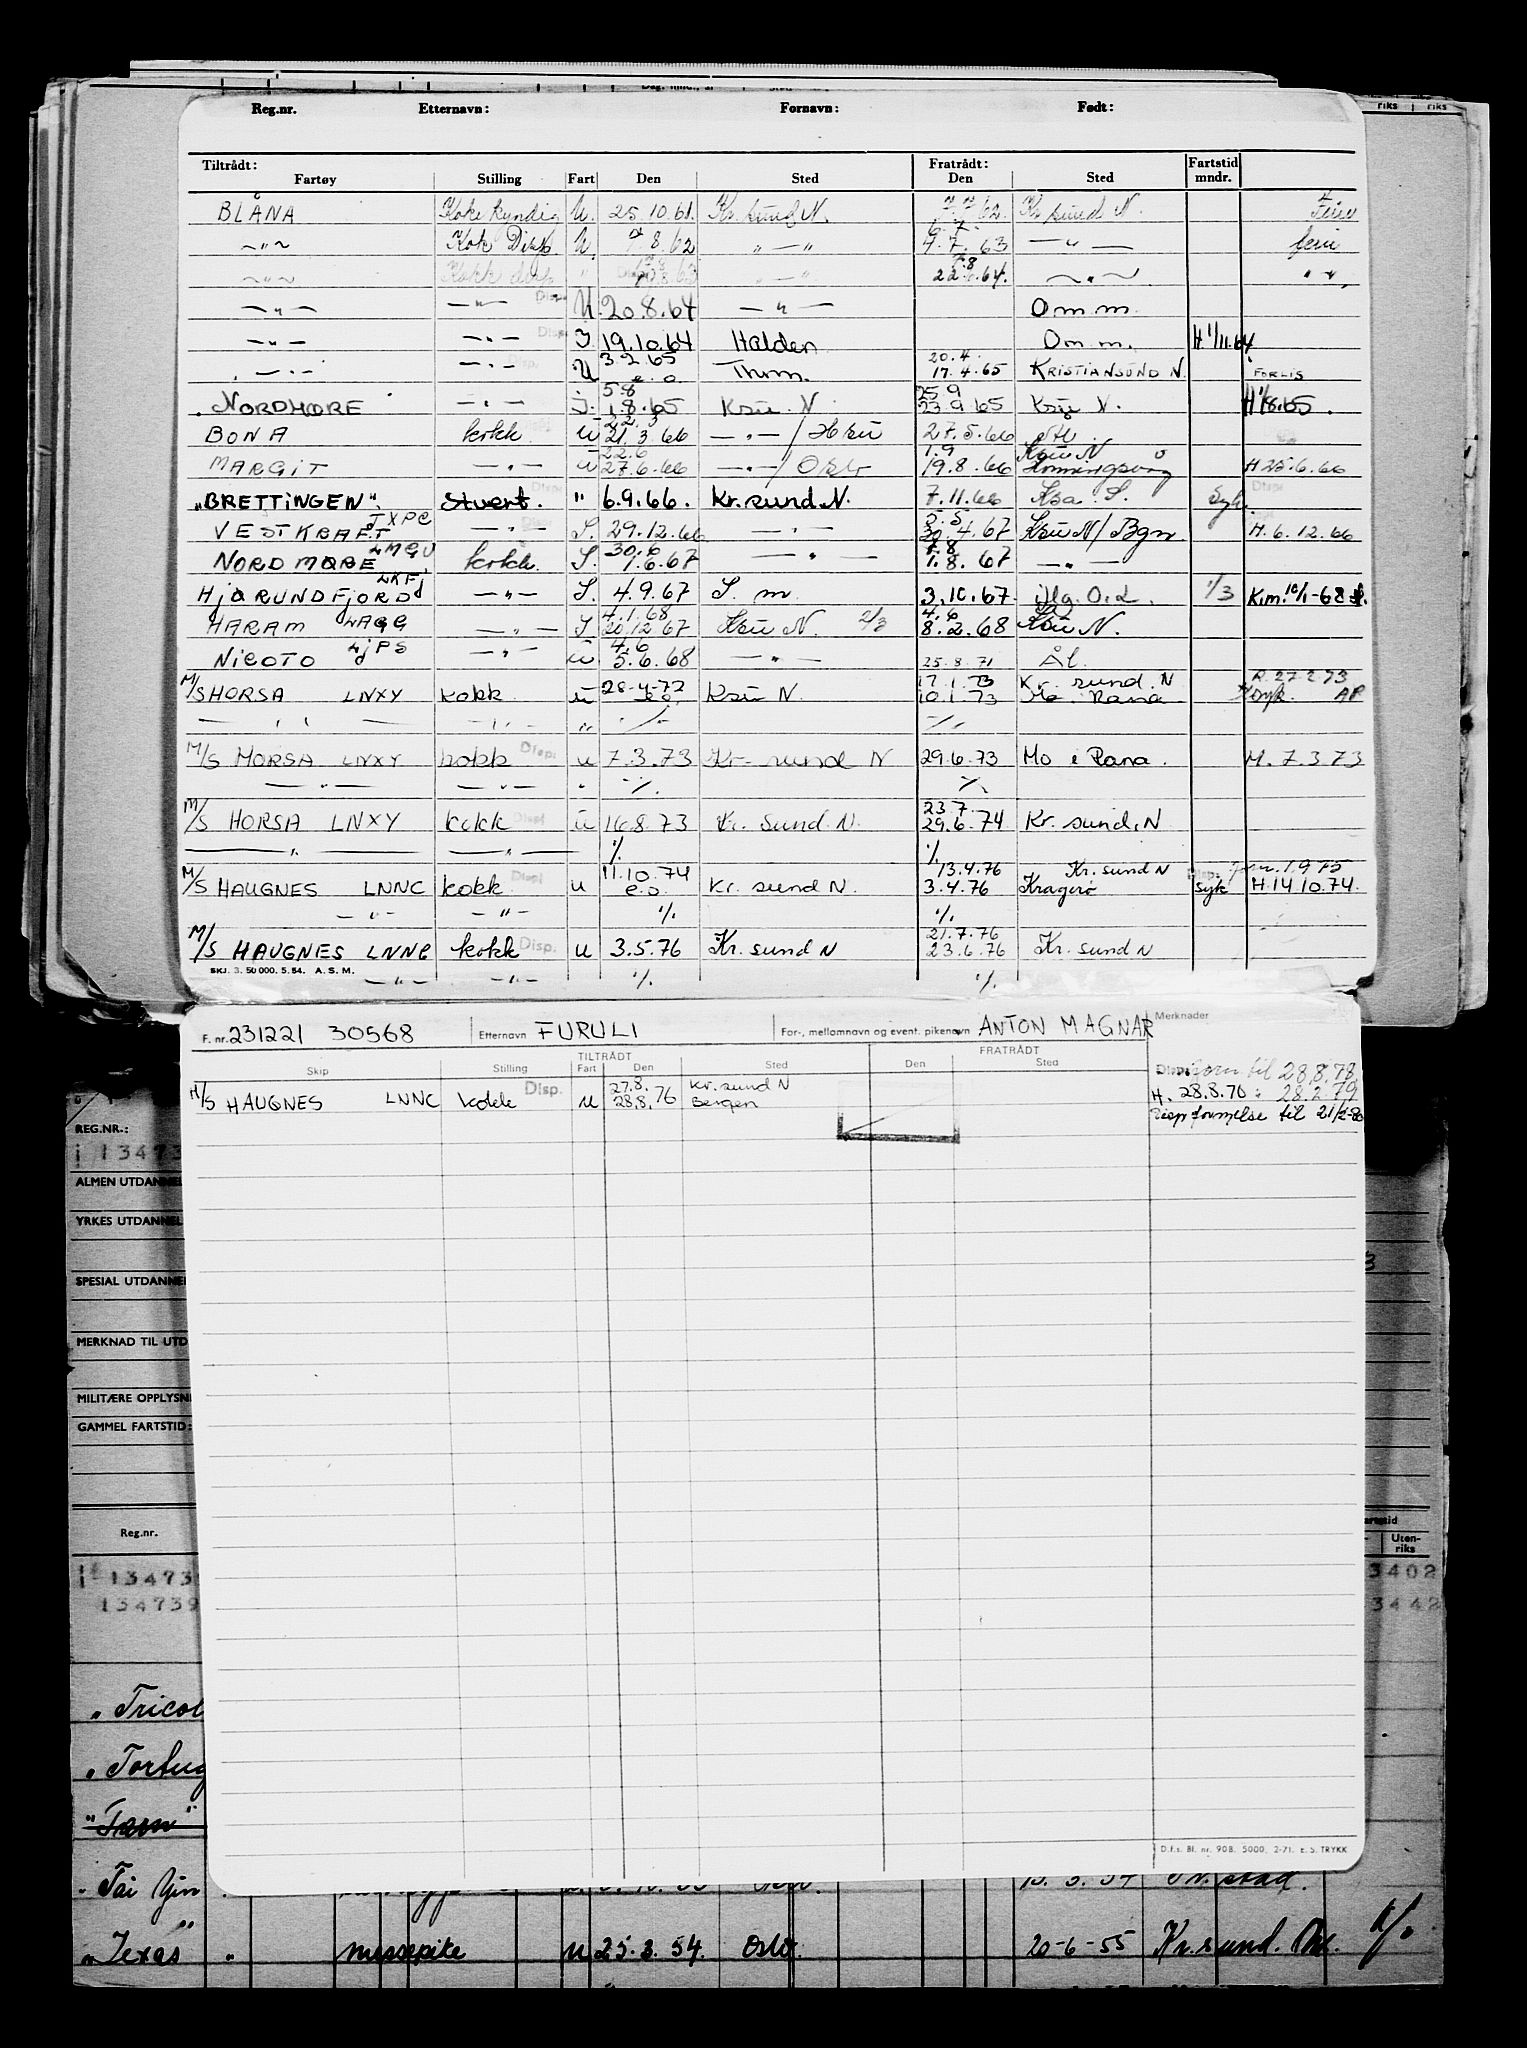 Reg.nr. Etternavn: Fornavn: Født:
Tiltrådt: Fratrådt: Fartstid
Fartøy Stilling Fart Den Sted Den Sted mndr.
BLÅNA Kokkekyndig U. 25.10.61. Kr.sund N. 7.7.62. Kr.sund N. Ferie
6.7.
-"- Kok Disp. U. 7.8.62 "-" 4.7.63 -"- ferie
7.8
-"- Kokk disp " "-" 22. .64. -"- " "
-"- -"- Disp. U. 20.8.64 -"- Om m.
-"- -"- Disp. I. 19.10.64 Halden Om m. H 1/11.64
3.2.65 20.4.
-"- -"- U e.o. Thm. 17.4.65 KRISTIANSUND N. FORLIS
5.8 25 9
NORDMØRE -"- I. 1.8.65 Ksu. N 23.9.65 Ksu N. H 1/8.65.
22.3
BONA kokk U 21.3.66 -"-/Hsu 27.5.66
22.6 1.9 Ksu N
MARGIT -"- U 27.6.66 -"-/Oslo 19.8.66 Honningsvåg H 25.6.66
"BRETTINGEN". Stuert. Disp. " 6.9.66. Kr.sund N. 7.11.66 Ksa. S. Syk.
JXPC 5.5
VESTKRAFT -"- S. 29.12.66 -"- 30.4.67 Ksu N/Bgn H. 6.12.66
LMGU 30.6 8.8
NORDMØRE kokk S. 1.6.67 -"- 1.8.67 -"-
LKFJ
HJØRUNDFJORD -"- S. 4.9.67 S. m. 3.10.67. 1/3 K.m. 10/1-68
4.1.68 4.6
HARAM LAGG -"- I 20.12 67 Ksu N. 2/3 8.2.68 Ksu N.
LJPS 4.6
NICOTO -"- U 5.6.68 -"- 25.8.71 Ål.
28-4-72 17.1.73 Kr.sund.N R.27.2.73
M/S HORSA LNXY kokk U e.o. Ksu N. 10.1.73 Mo i Rana syk. AP
-"- -"- " ./. ./.
M/S HORSA LNXY kokk Disp. U 7.3.73 Kr.sund N 29.6.73 Mo i Rana. M. 7.3.73
-"- -"- " ./. ./.
23.7.
M/S HORSA LNXY kokk Disp. U 16.8.73 Kr.Sund.N. 29.6.74 Kr.sund.N
-"- -"- ./. ./.
11.10.74 13.4.76 Kr.sund N
M/S HAUGNES LNNC kokk Disp. U e.o. Kr.sund N. 3.4.76 Kragerø syk H.14.10.74.
-"- -"- ./. ./.
21.7.76
M/S HAUGNES LNNC kokk Disp. U 3.5.76 Kr.sund N 23.6.76 Kr.sund N
SKJ. 3. 50 000. 5.54. A.S.M.
-"- -"- ./. ./.
F. nr. 231221 30568 Etternavn FURULI For-, mellomnavn og event. pikenavn ANTON MAGNAR Merknader
TILTRÅDT FRATRÅDT
Skip Stilling Fart Den Sted Den Sted
Disp. til 28.8.78
27.8. Kr.sund N
M/S HAUGNES LNNC kokk Disp. U 28.8.76 Bergen H. 28.8.78 : 28.2.79
til 21/2-80
D.f.s. Bl. nr. 908. 5000. 2-71. E.S. TRYKK
REG.NR.:
13473
ALMEN UTDANNE
YRKES UTDANNEL
SPESIAL UTDANNE
MERKNAD TIL UTD
MILITÆRE OPPLYSNI
GAMMEL FARTSTID:
Reg.nr. Uten-
riks
13473 3402
134739 3442
"Tricol
"Tortug
"Tarn"
"Tai Yin
"Texas" " messepike U 25.3.54. Oslo. 20-6-55 Kr.sund. ./.